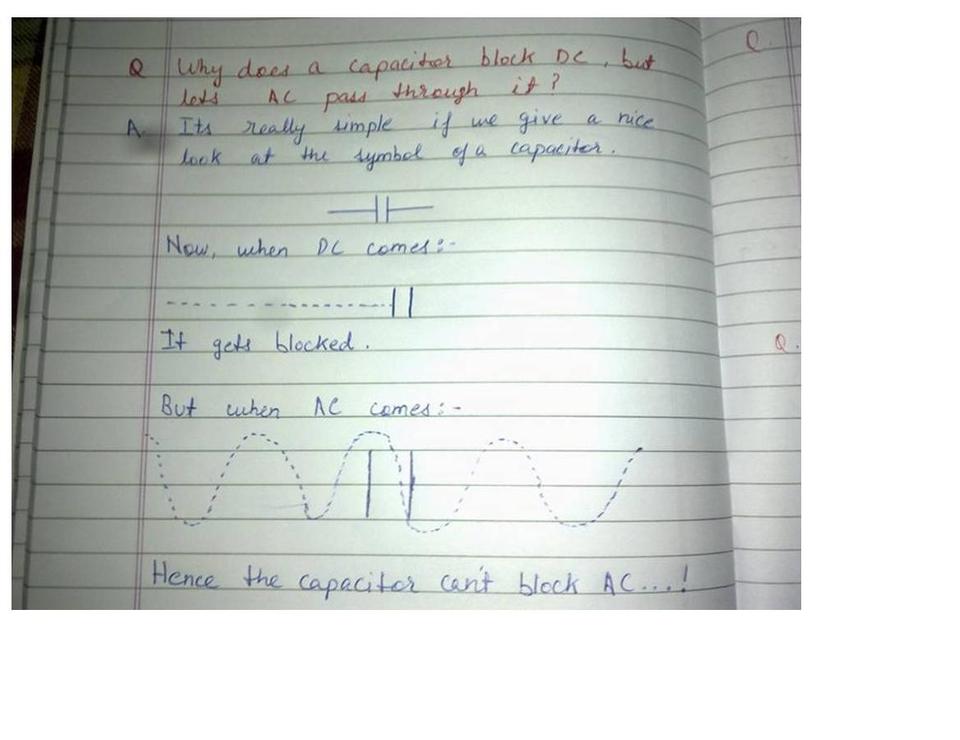 Q.
Q Why does a capacitor block DC, but
lets AC pass through it?
A. Its really simple if we give a nice
look at the symbol of a capacitor.
Now, when DC comes:-
It gets blocked.
Q.
But when AC comes:-
Hence the capacitor can't block AC...!